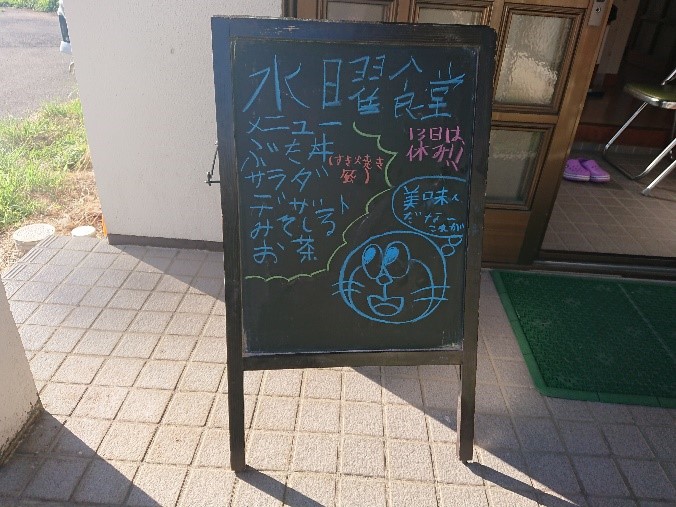 水曜食堂
メニュー
ぶた丼
(すき焼き
風)
サラダ
デザート
みそしる
お茶
13日は
休み!!
美味ん
だなー
これが